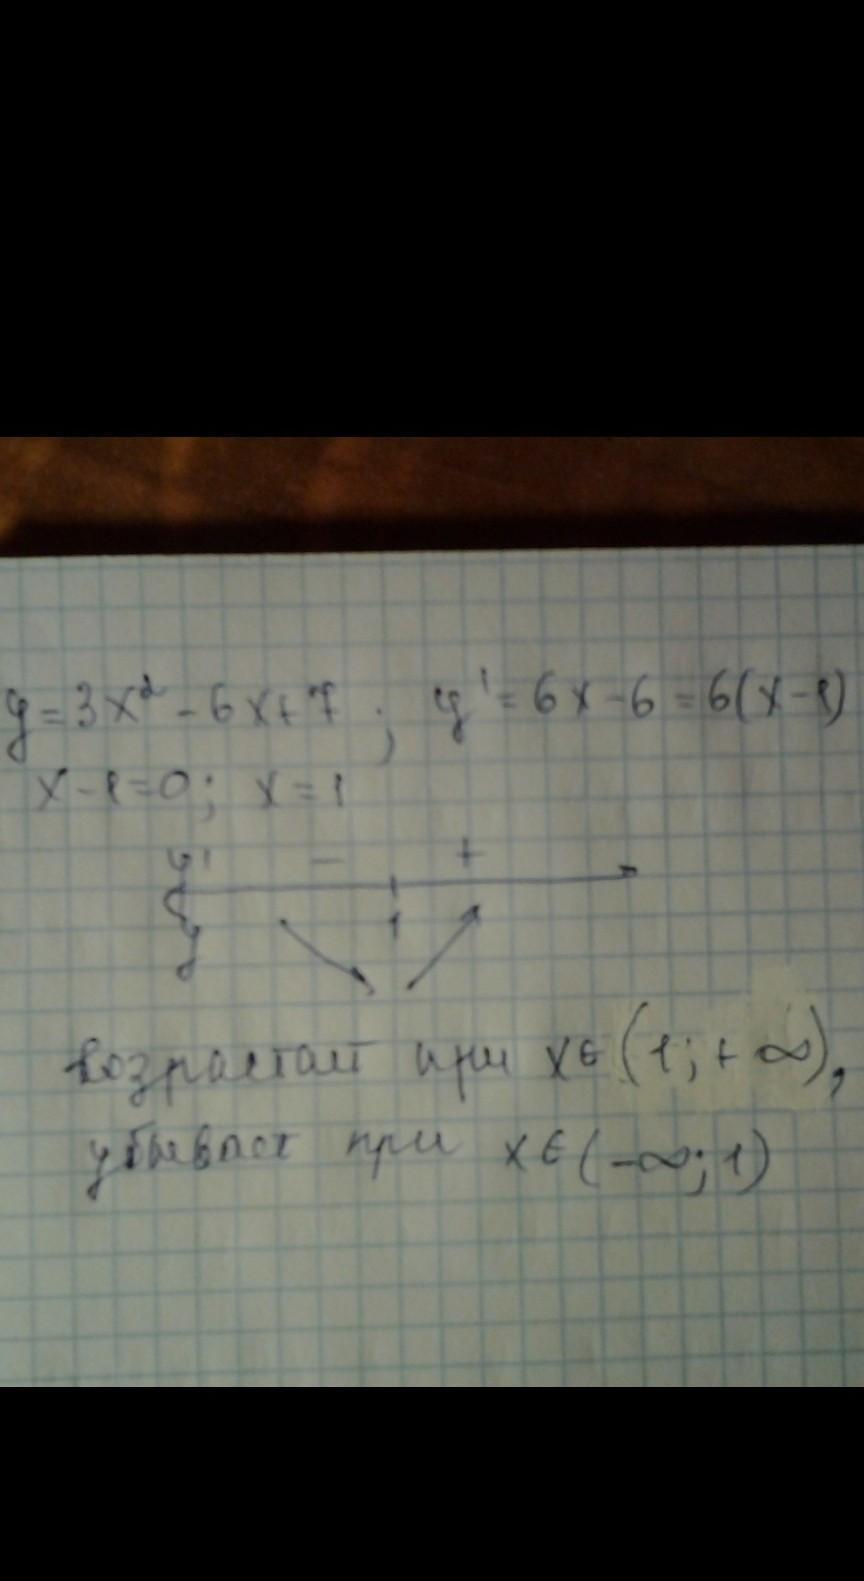 y = 3x² - 6x + 7 ; y' = 6x - 6 = 6(x - 1)
x - 1 = 0; x = 1
y' - +
y 1
возрастает при x ∈ (1; + ∞),
убывает при x ∈ (-∞; 1)